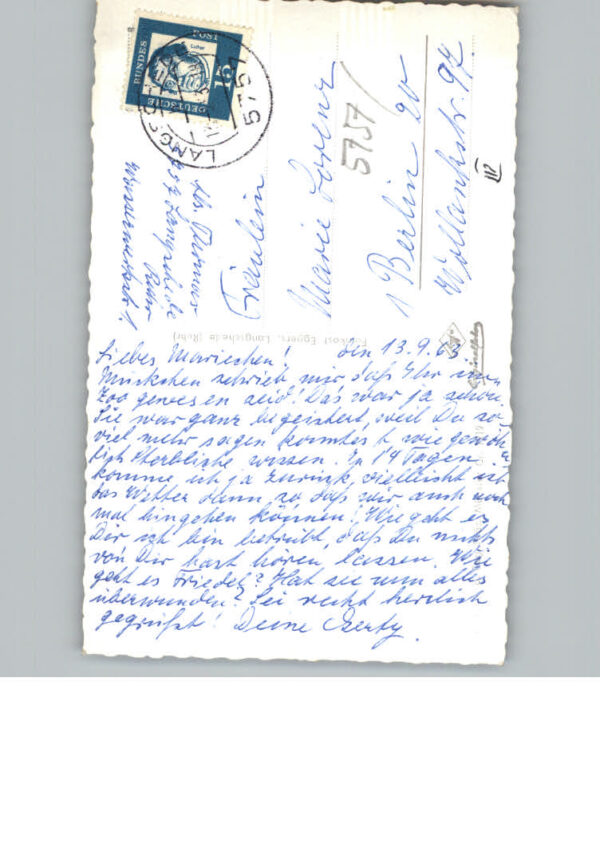 Liebes Mariechen! den 13.9.63.
Muckchen schrieb mir, daß Ihr im
Zoo gewesen seid! Das war ja schön.
Sie war ganz begeistert, weil Du so
viel mehr sagen konntest wie gewöh
lich Sterbliche wissen. In 14 Tagen
komme ich ja zurück, vielleicht ist
das Wetter dann so, daß wir auch noch
mal hingehen können! Wie geht es
Dir ich bin betrübt, daß Du nichts
von Dir hast hören lassen. Wie
geht es Friedel? Hat sie nun alles
überwunden? Sei recht herzlich
gegrüßt! Deine
Fräulein
Marie Lorenz
1 Berlin 20
Wollankstr. 97
III
5757/
Abs.
5757 Langschede
Ruhr
DEUTSCHE
BUNDES
POST
Luther
15
5757
Foto-Kost Eggers, Langschede (Ruhr)